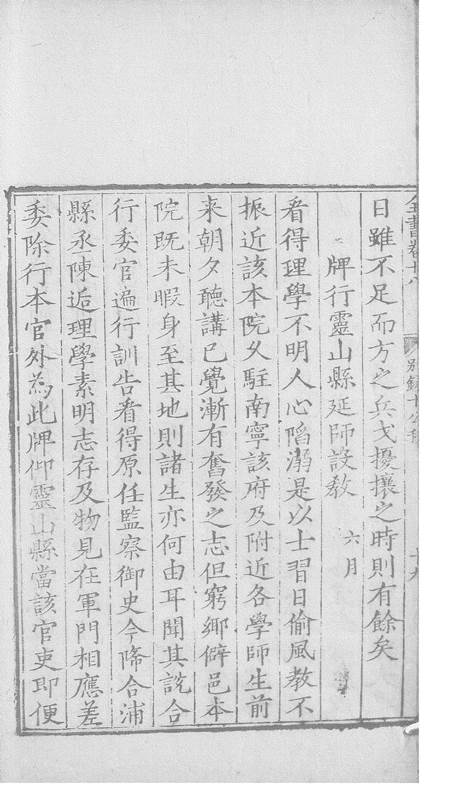 全書卷十八
別錄十公移
十九
日雖不足而方之兵戈擾攘之時則有餘矣
牌行靈山縣延師設教 六月
看得理學不明人心陷溺是以士習日偷風教不
振近該本院久駐南寧該府及附近各學師生前
來朝夕聽講已覺漸有奮發之志但窮鄉僻邑本
院旣未暇身至其地則諸生亦何由耳聞其說合
行委官遍行訓告看得原任監察御史今降合浦
縣丞陳逅理學素明志存及物見在軍門相應差
委除行本官外為此牌仰靈山縣當該官吏即便